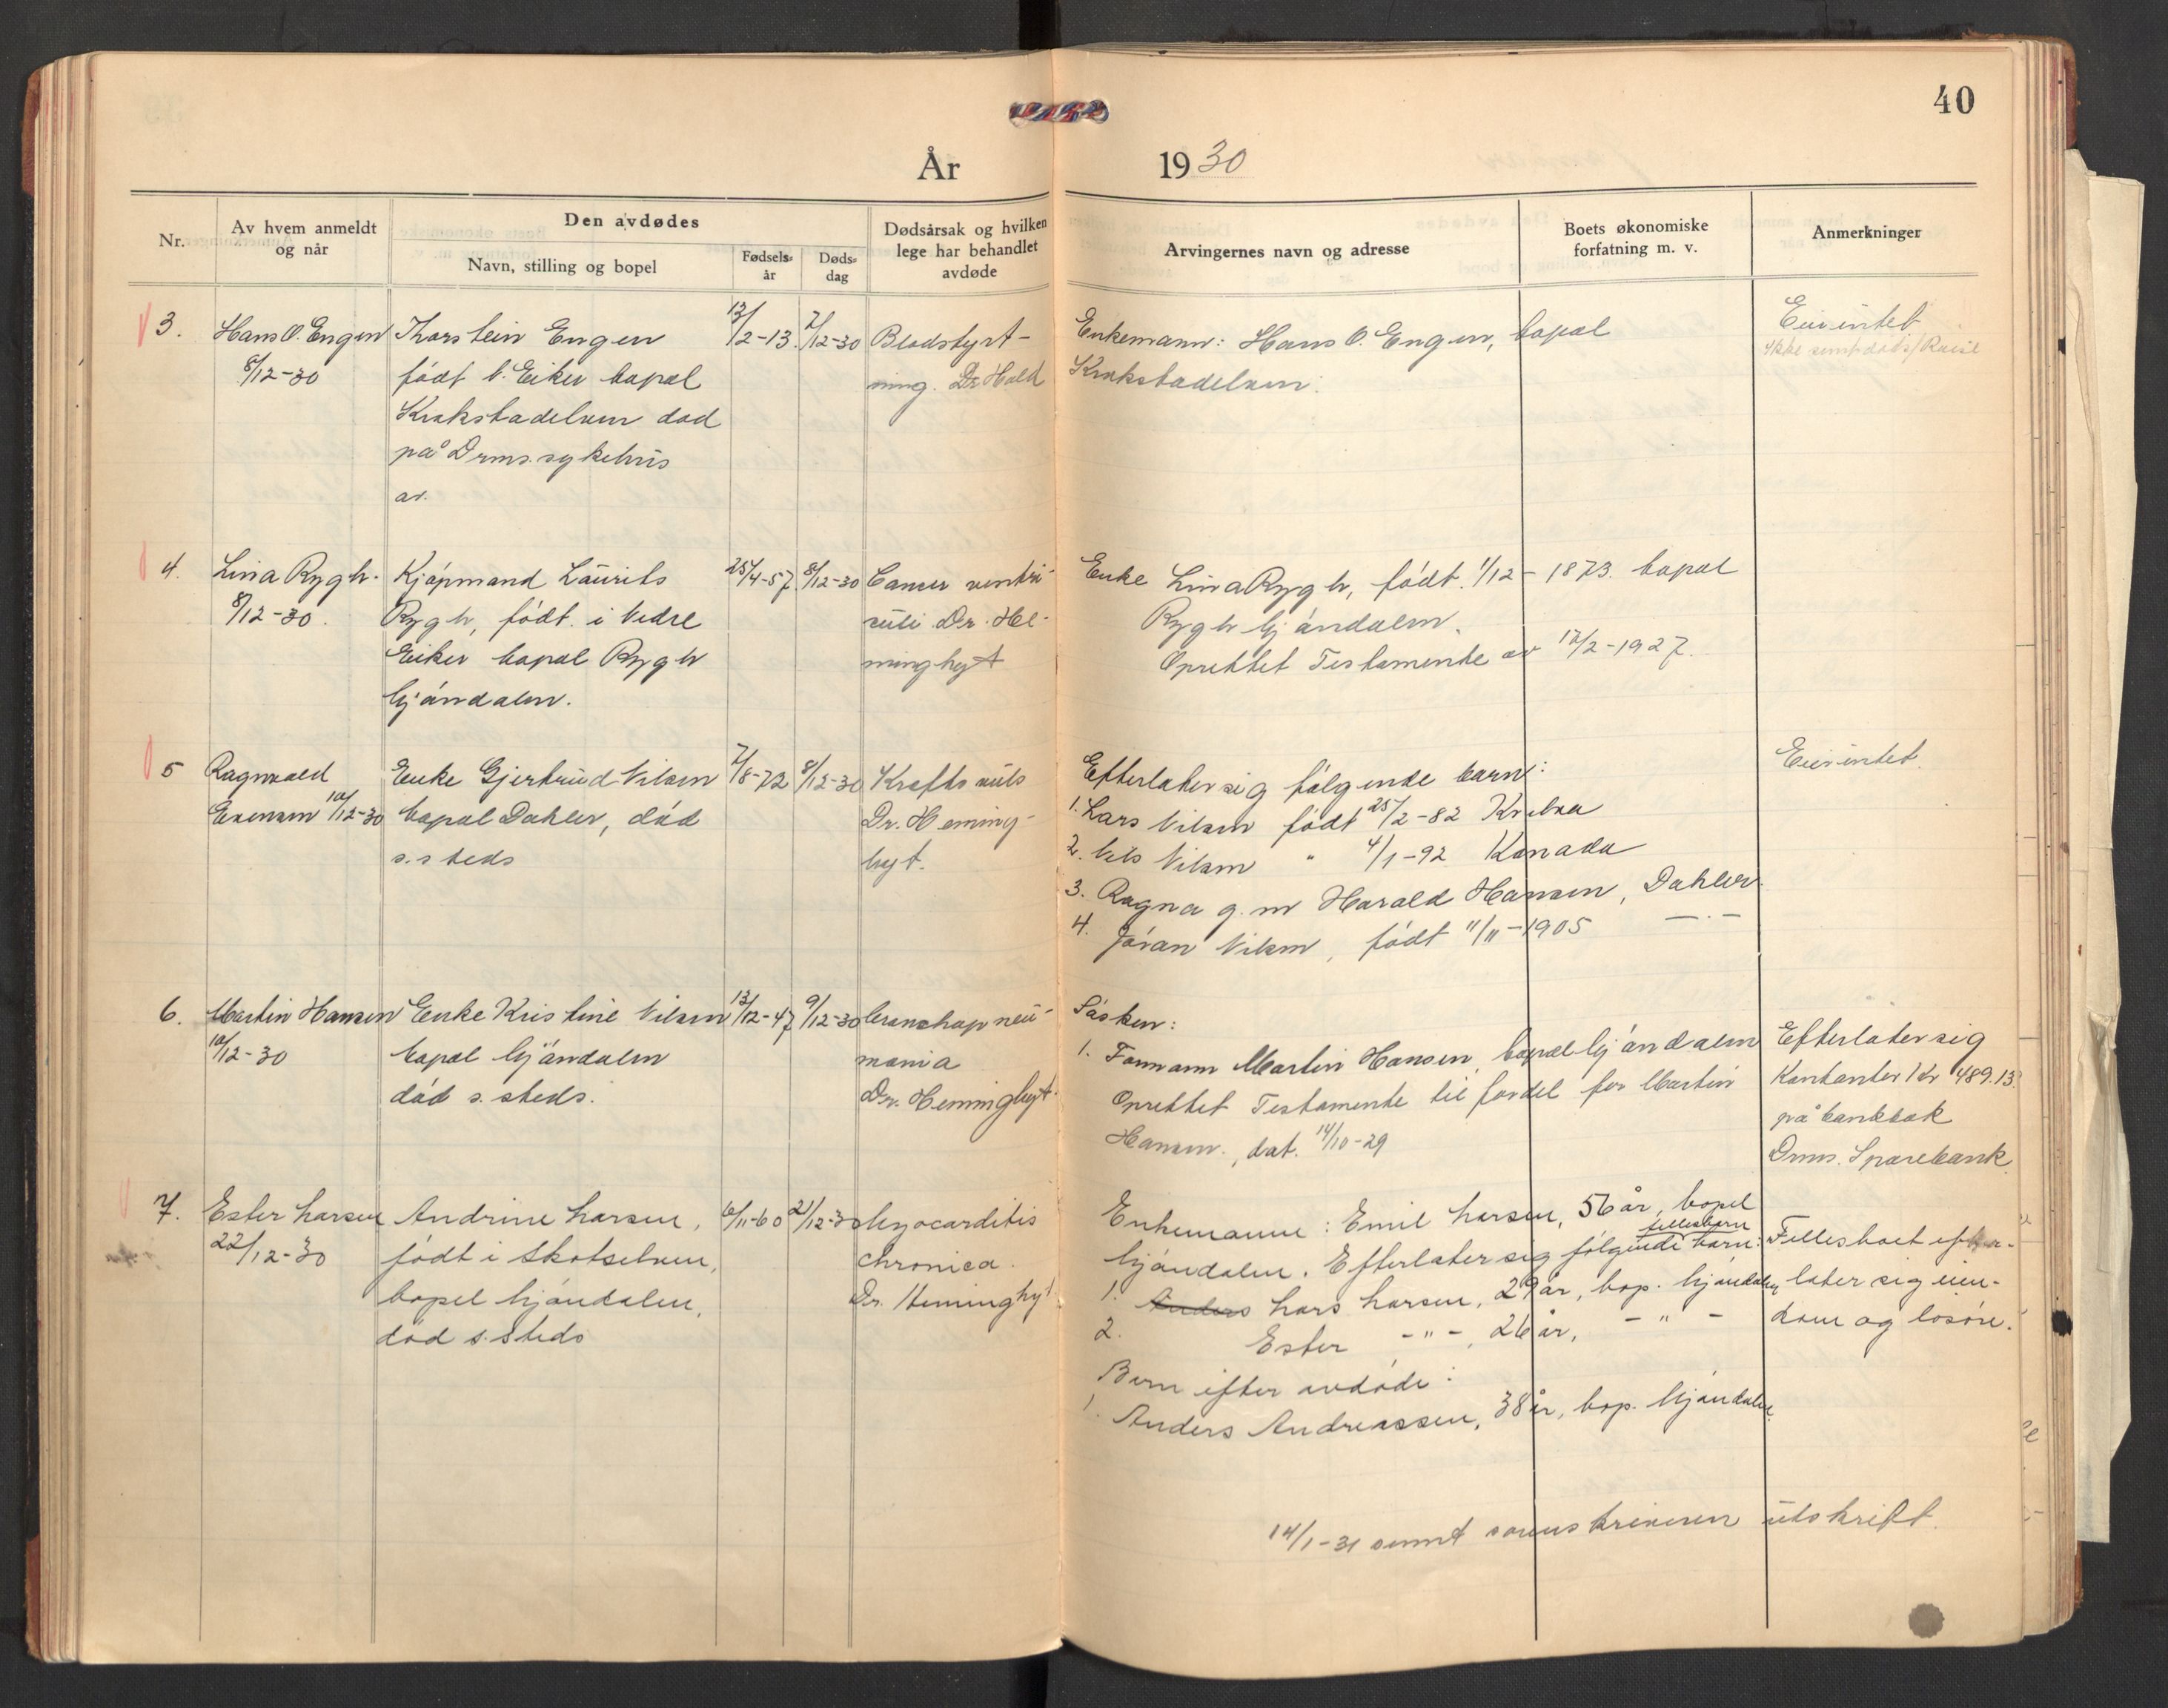 40
År 1930
Nr.
Av hvem anmeldt
og når
Den avdødes
Navn, stilling og bopel
Fødsels-
år
Døds-
dag
Dødsårsak og hvilken
lege har behandlet
avdøde
Arvingernes navn og adresse
Boets økonomiske
forfatning m. v.
Anmerkninger
3.
Hans O. Engen
8/12-30
Torstein Engen
født N. Eiker bopæl
Krokstadelven død
på Drms. sykehus
av.
13/2-13.
7/12-30
Blodstyrt-
ning. Dr Hald
Enkemann: Hans O. Engen, bopæl
Krokstadelven.
Eier intet
4.
Lina Rygh.
8/12-30.
Kjøpmand Laurits
Rygh, født. i Nedre
Eiker bopæl Rygh
Mjøndalen.
25/4-57.
8/12-30
Cancer ventri-
culi Dr. He-
minghyt
Enke Lina Rygh, født. 1/12-1873. bopæl
Rygh Mjøndalen.
Oprettet Testamente av 12/2-1927.
5
Ragnvald
Evensen 10/12-30
Enke Gjertrud Nilsen
bopæl Døhler, død
s. steds
7/8-72
8/12-30
Krefts
Dr. Heming-
hyt.
Efterlater sig følgende barn:
1. Lars Nilsen født 25/2-82
2. Nils Nilsen " 4/1-92 Kanada
3. Ragna g. m Harald Hansen, Døhler
4. Jøran Nilsen, født 11/11-1905 —·—
Eier intet.
6.
Martin Hansen
10/12-30
Enke Kristine Nilsen
bopæl Mjøndalen
død s. steds.
13/12-47
9/12-30
neu-
monia
Dr. Heminghyt.
Søsken:
1. Formann Martin Hansen, bopæl Mjøndalen
Oprettet Testamente til fordel for Martin
Hansen., dat. 14/10-29
Efterlater sig
Kontanter Kr 489.13.
på bankbok
Drms. Sparebank.
7.
Ester Larsen
22/12-30
Andrine Larsen,
født i Skotselven,
bopel Mjøndalen,
død s. steds
6/11-60
21/12-30
Myocarditis
chronica.
Dr. Heminghyt
Enkemann: Emil Larsen, 56 år, bopel
fellesbarn
Mjøndalen. Efterlater sig følgende barn:
1. Anders Lars Larsen, 29 år, bop. Mjøndalen
2. Ester -"-, 26 år, -"-
Barn efter avdøde:
1. Anders Andreassen, 38 år, bop. Mjøndalen.
Fellesboet efter-
later sig eien-
dom og løsøre.
14/1-31 sendt sorenskriveren utskrift.